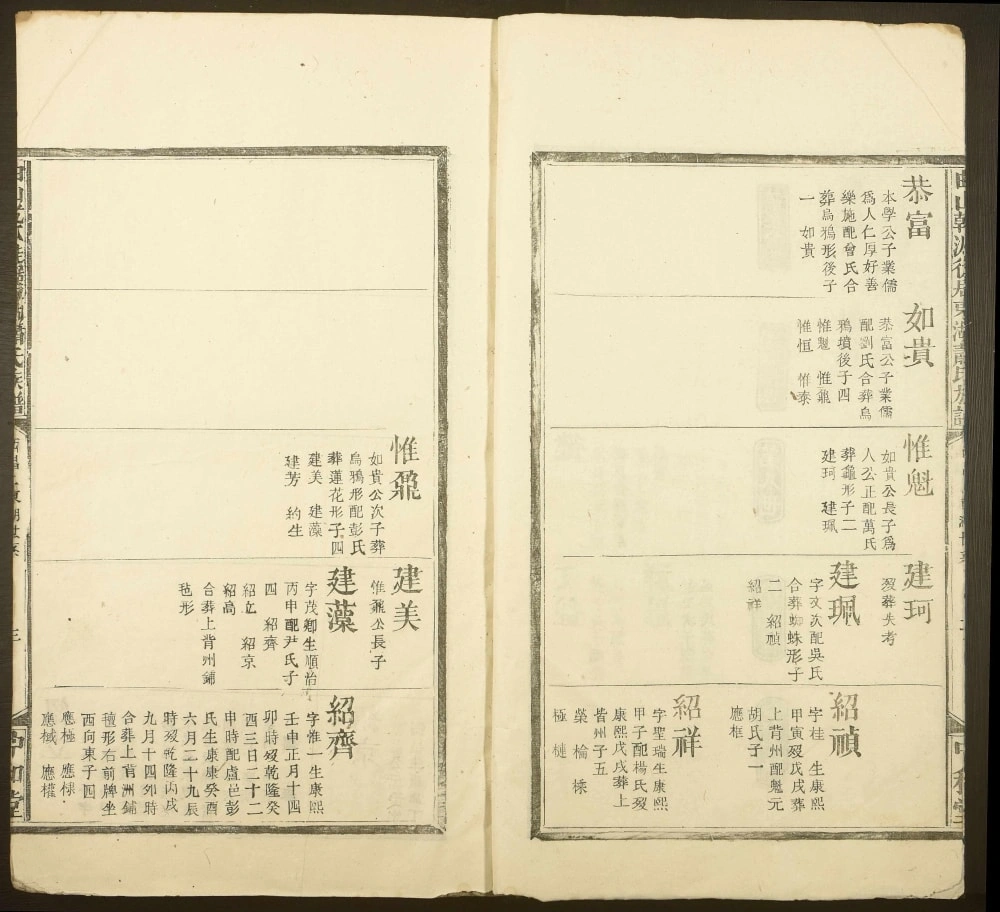 恭富
本學公子業儒
爲人仁厚好善
樂施配曾氏合
葬烏鴉形後子
一 如貴
如貴
恭富公子業儒
配劉氏合葬烏
鴉墳後子四
惟魁 惟鼐
惟恒 惟泰
惟魁
如貴公長子爲
人公正配萬氏
葬龜形子二
建珂 建珮
建珂
歿葬失考
建珮
字友次配吳氏
合葬蜘蛛形子
二 紹禎
紹祥
紹禎
字桂 生康熙
甲寅歿戊戌葬
上背州配魁元
胡氏子一
應框
紹祥
字聖瑞生康熙
甲子配楊氏歿
康熙戊戌葬上
背州子五
榮 檜 㮚
極 槤
惟鼐
如貴公次子葬
烏鴉形配彭氏
葬蓮花形子四
建美 建藻
建芳 約生
建美
惟鼐公長子
建藻
字茂卿生順治
丙申配尹氏子
四 紹齊
紹立 紹京
紹高
合葬上背州鋪
毡形
紹齊
字惟一生康熙
壬申正月十四
卯時歿乾隆癸
酉三日二十二
申時配盧邑彭
氏生康康癸酉
六月二十九辰
時歿乾隆丙戌
九月十四卯時
合葬上背洲鋪
氊形右前牌坐
西向東子四
應極 應椂
應棫 應權
中和堂